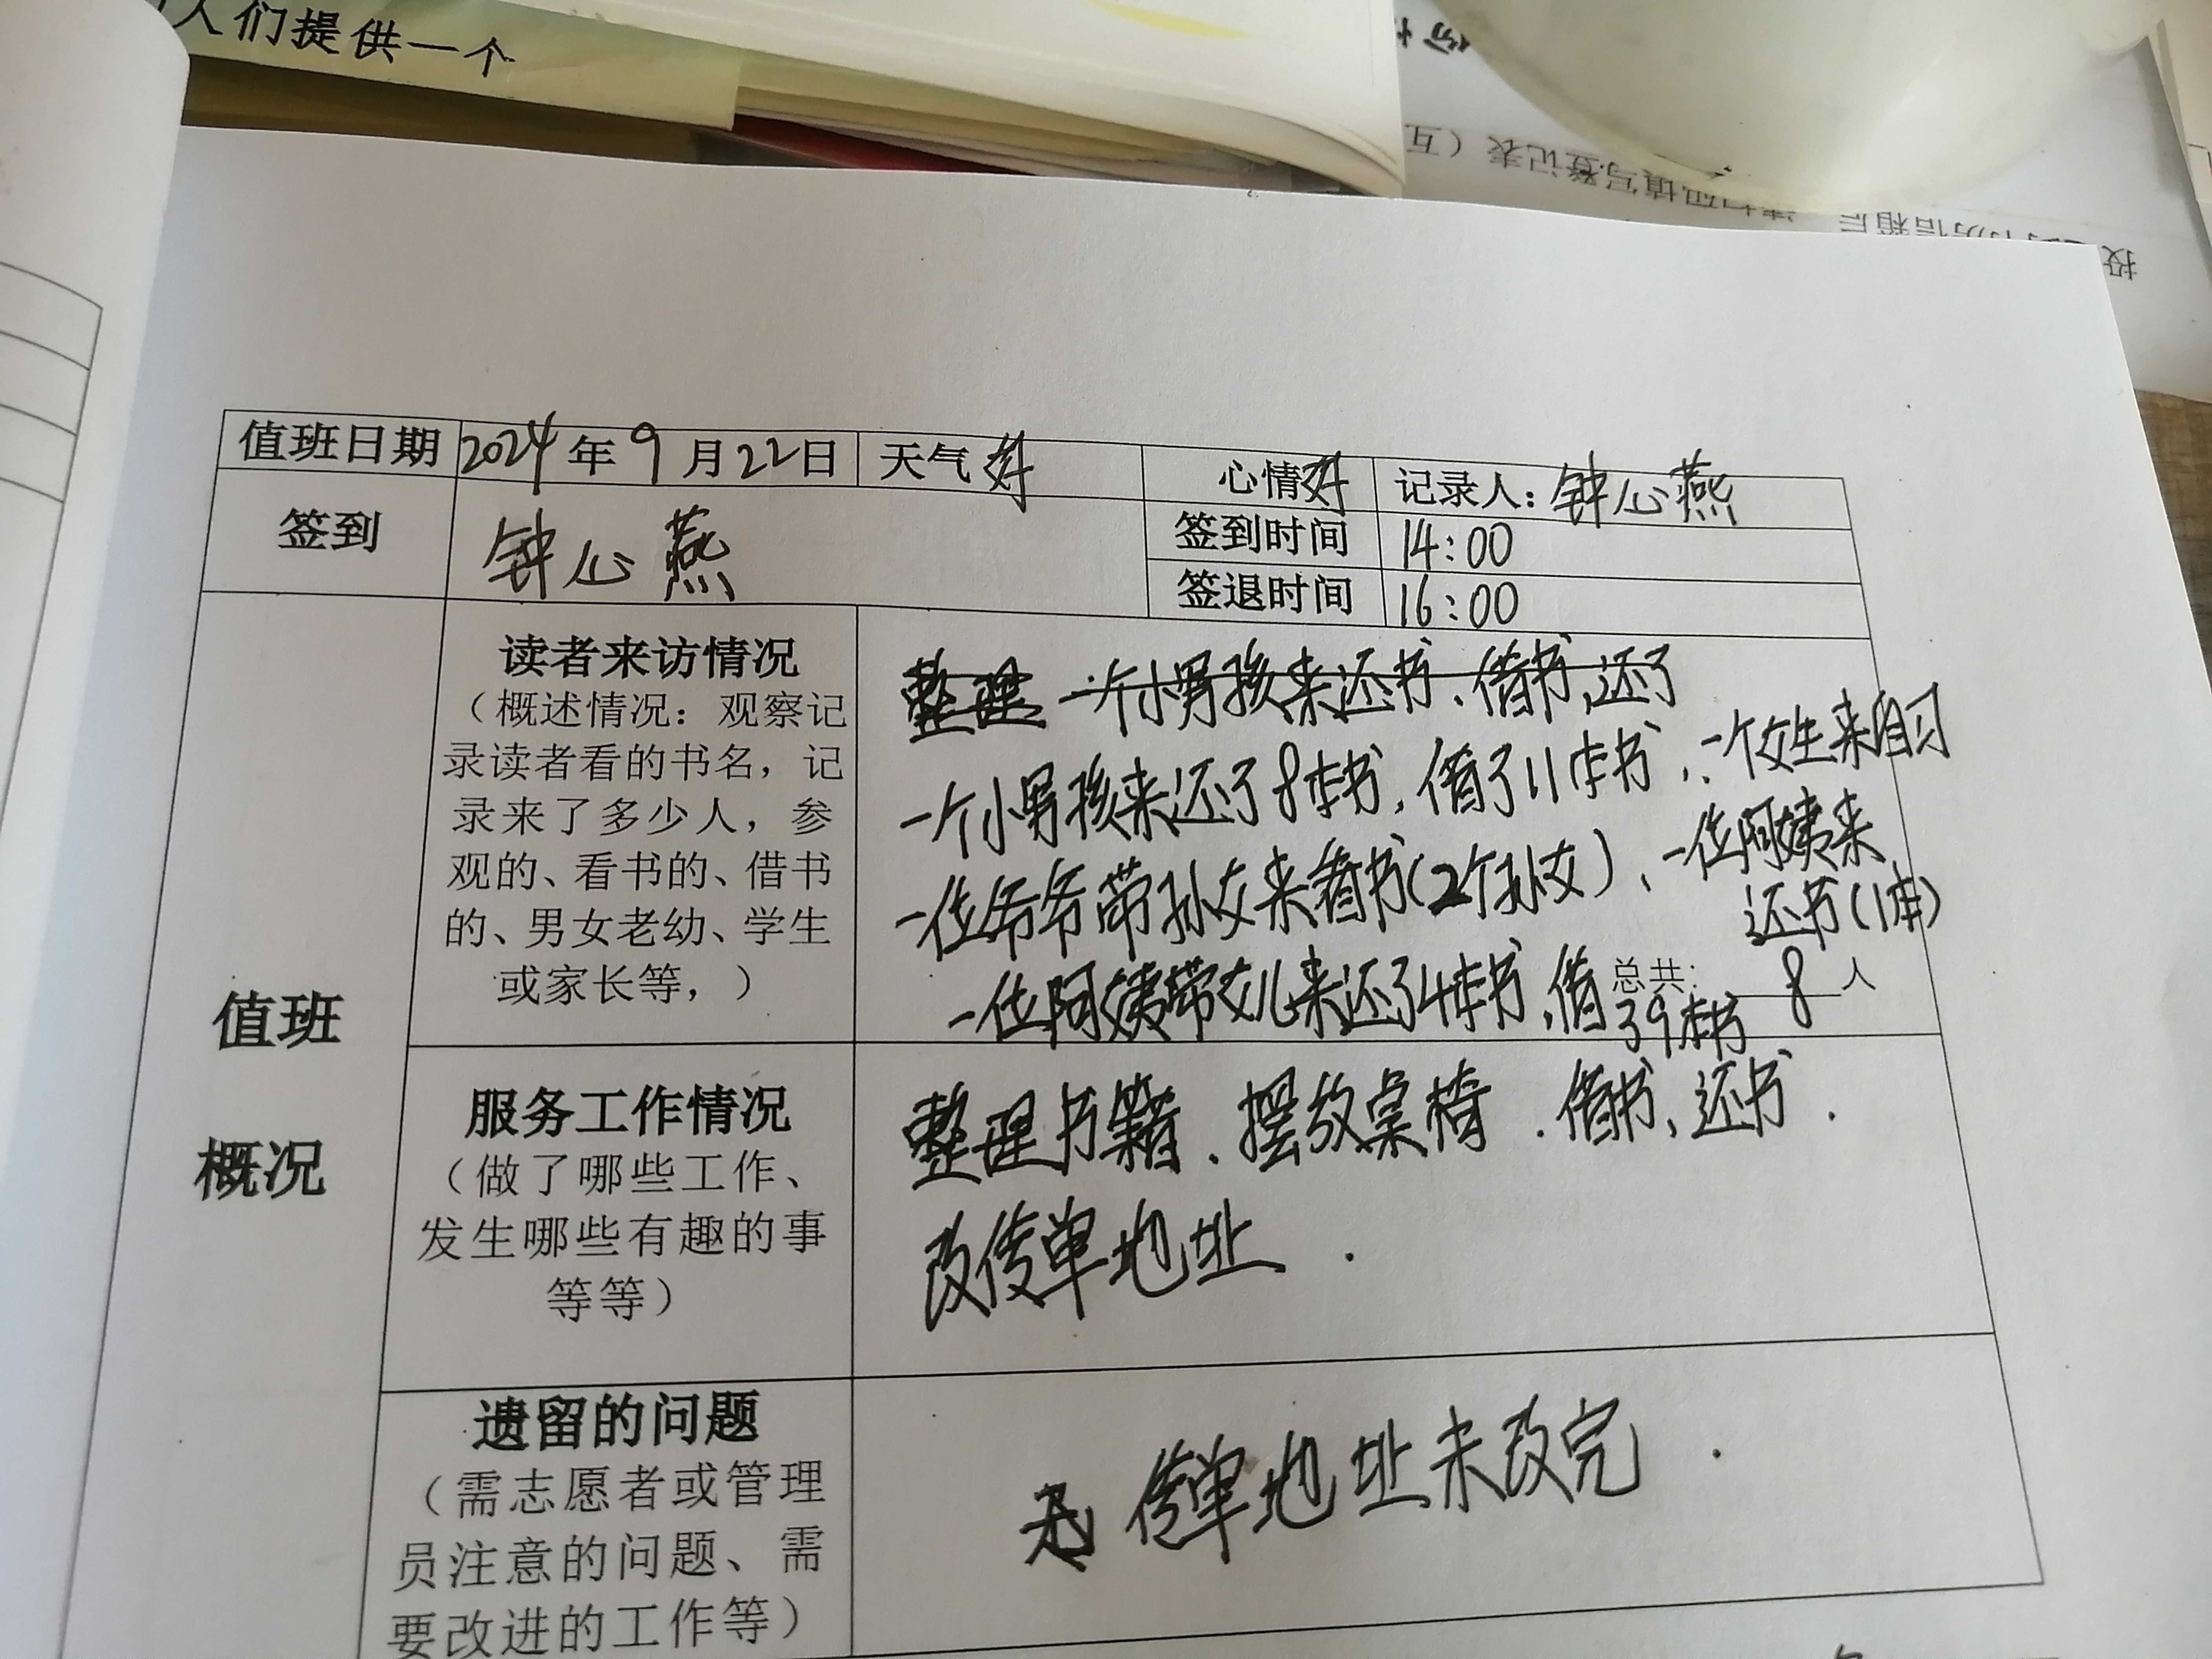 人们提供一个
值班日期 2024年9月22日 天气好 心情好 记录人：钟心燕
签到 钟心燕 签到时间 14:00
签退时间 16:00
值班
概况
读者来访情况
（概述情况：观察记
录读者看的书名，记
录来了多少人，参
观的、看书的、借书
的、男女老幼、学生
或家长等，）
整理 一个小男孩来还书、借书，还了
一个小男孩来还了8本书，借了11本书、一个女生来自习
一位爷爷带孙女来看书（2个孙女）、一位阿姨来
还书（1本）
一位阿姨带女儿来还了4本书，借39本书
总共：8人
服务工作情况
（做了哪些工作、
发生哪些有趣的事
等等）
整理书籍、摆放桌椅．借书、还书．
改传单地址．
遗留的问题
（需志愿者或管理
员注意的问题、需
要改进的工作等）
传单地址未改完．
请扫码填写登记表（互
投